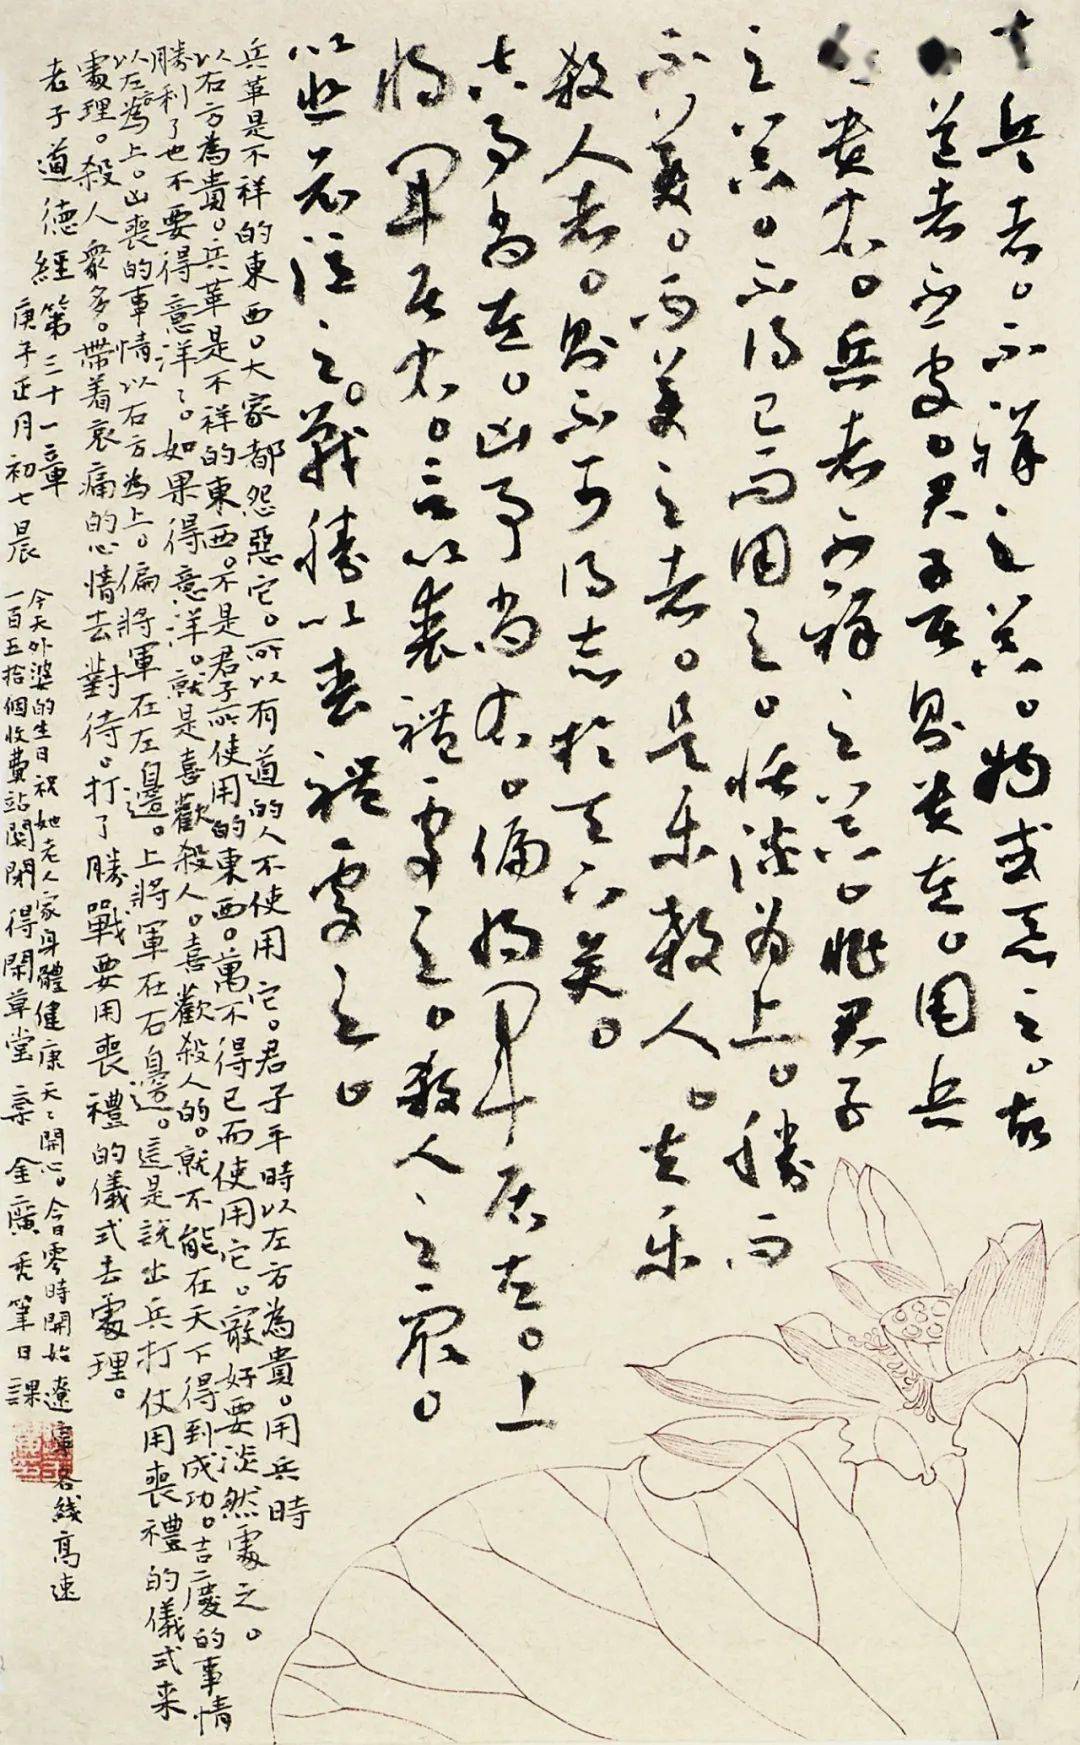 夫兵者。不祥之器。物或惡之。故
道者不處。君子居則貴左。用兵
貴右。兵者不祥之器。非君子
之器。不得已而用之。恬淡為上。勝而
不美。而美之者。是樂殺人。夫樂
殺人者。則不可得志於天下矣。
吉事尚左。凶事尚右。偏將軍居左。上
將軍居右。言以喪禮處之。殺人之眾。
以悲哀泣之。戰勝以喪禮處之。
兵革是不祥的東西。大家都怨惡它。所以有道的人不使用它。君子平時以左方為貴。用兵時
以右方為貴。兵革是不祥的東西。不是君子所使用的東西。萬不得已而使用它。最好要淡然處之。
勝利了也不要得意洋〻。如果得意洋。就是喜歡殺人。喜歡殺人的。就不能在天下得到成功。吉慶的事情
以左為上。凶喪的事情以右方為上。偏將軍在左邊。上將軍在右邊。這是説出兵打仗用喪禮的儀式来
處理。殺人衆多。帶着哀痛的心情去對待。打了勝戰要用喪禮的儀式去處理。
老子道德經第三十一章
庚子正月初七晨
今天外婆的生日祝她老人家身體健康天〻開心。今日零時開始遼寧各綫高速
一百五拾個收費站関閉 得閑草堂 金廣禿筆日課